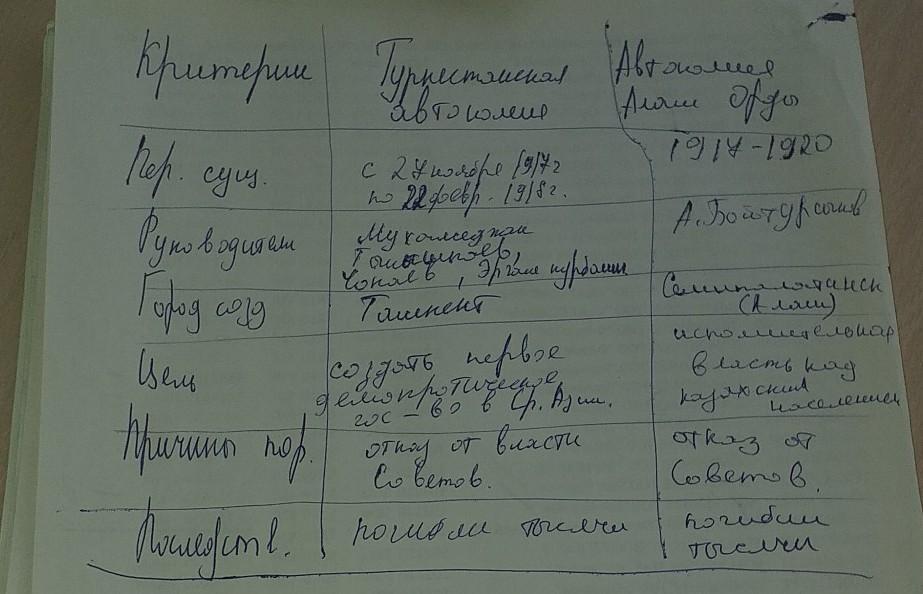 Критерии
Туркестанская
автономия
Автономия
Алаш Орды
Пер. сущ.
с 27 ноября 1917г
по 22 февр. 1918г.
1917-1920
Руководители
Мухамеджан
Тынышпаев,
Чокаев, Эргаш курбаши
А. Байтурсынов
Город созд
Ташкент
Семипалатинск
(Алаш)
Цель
создать первое
демократическое
гос-во в Ср. Азии.
исполнительная
власть над
казахским
населением
Причины пор.
отказ от власти
Советов.
отказ от
Советов.
Последств.
погибли тысячи
погибли
тысячи